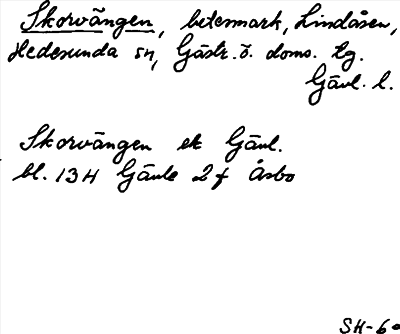 Skorvängen, betesmark, Lindåsen,
Hedesunda sn, Gästr. ö. doms. tg.
Gävl. l.
Skorvängen ek Gävl.
bl. 13H Gävle 2f Årsbo
SH-60